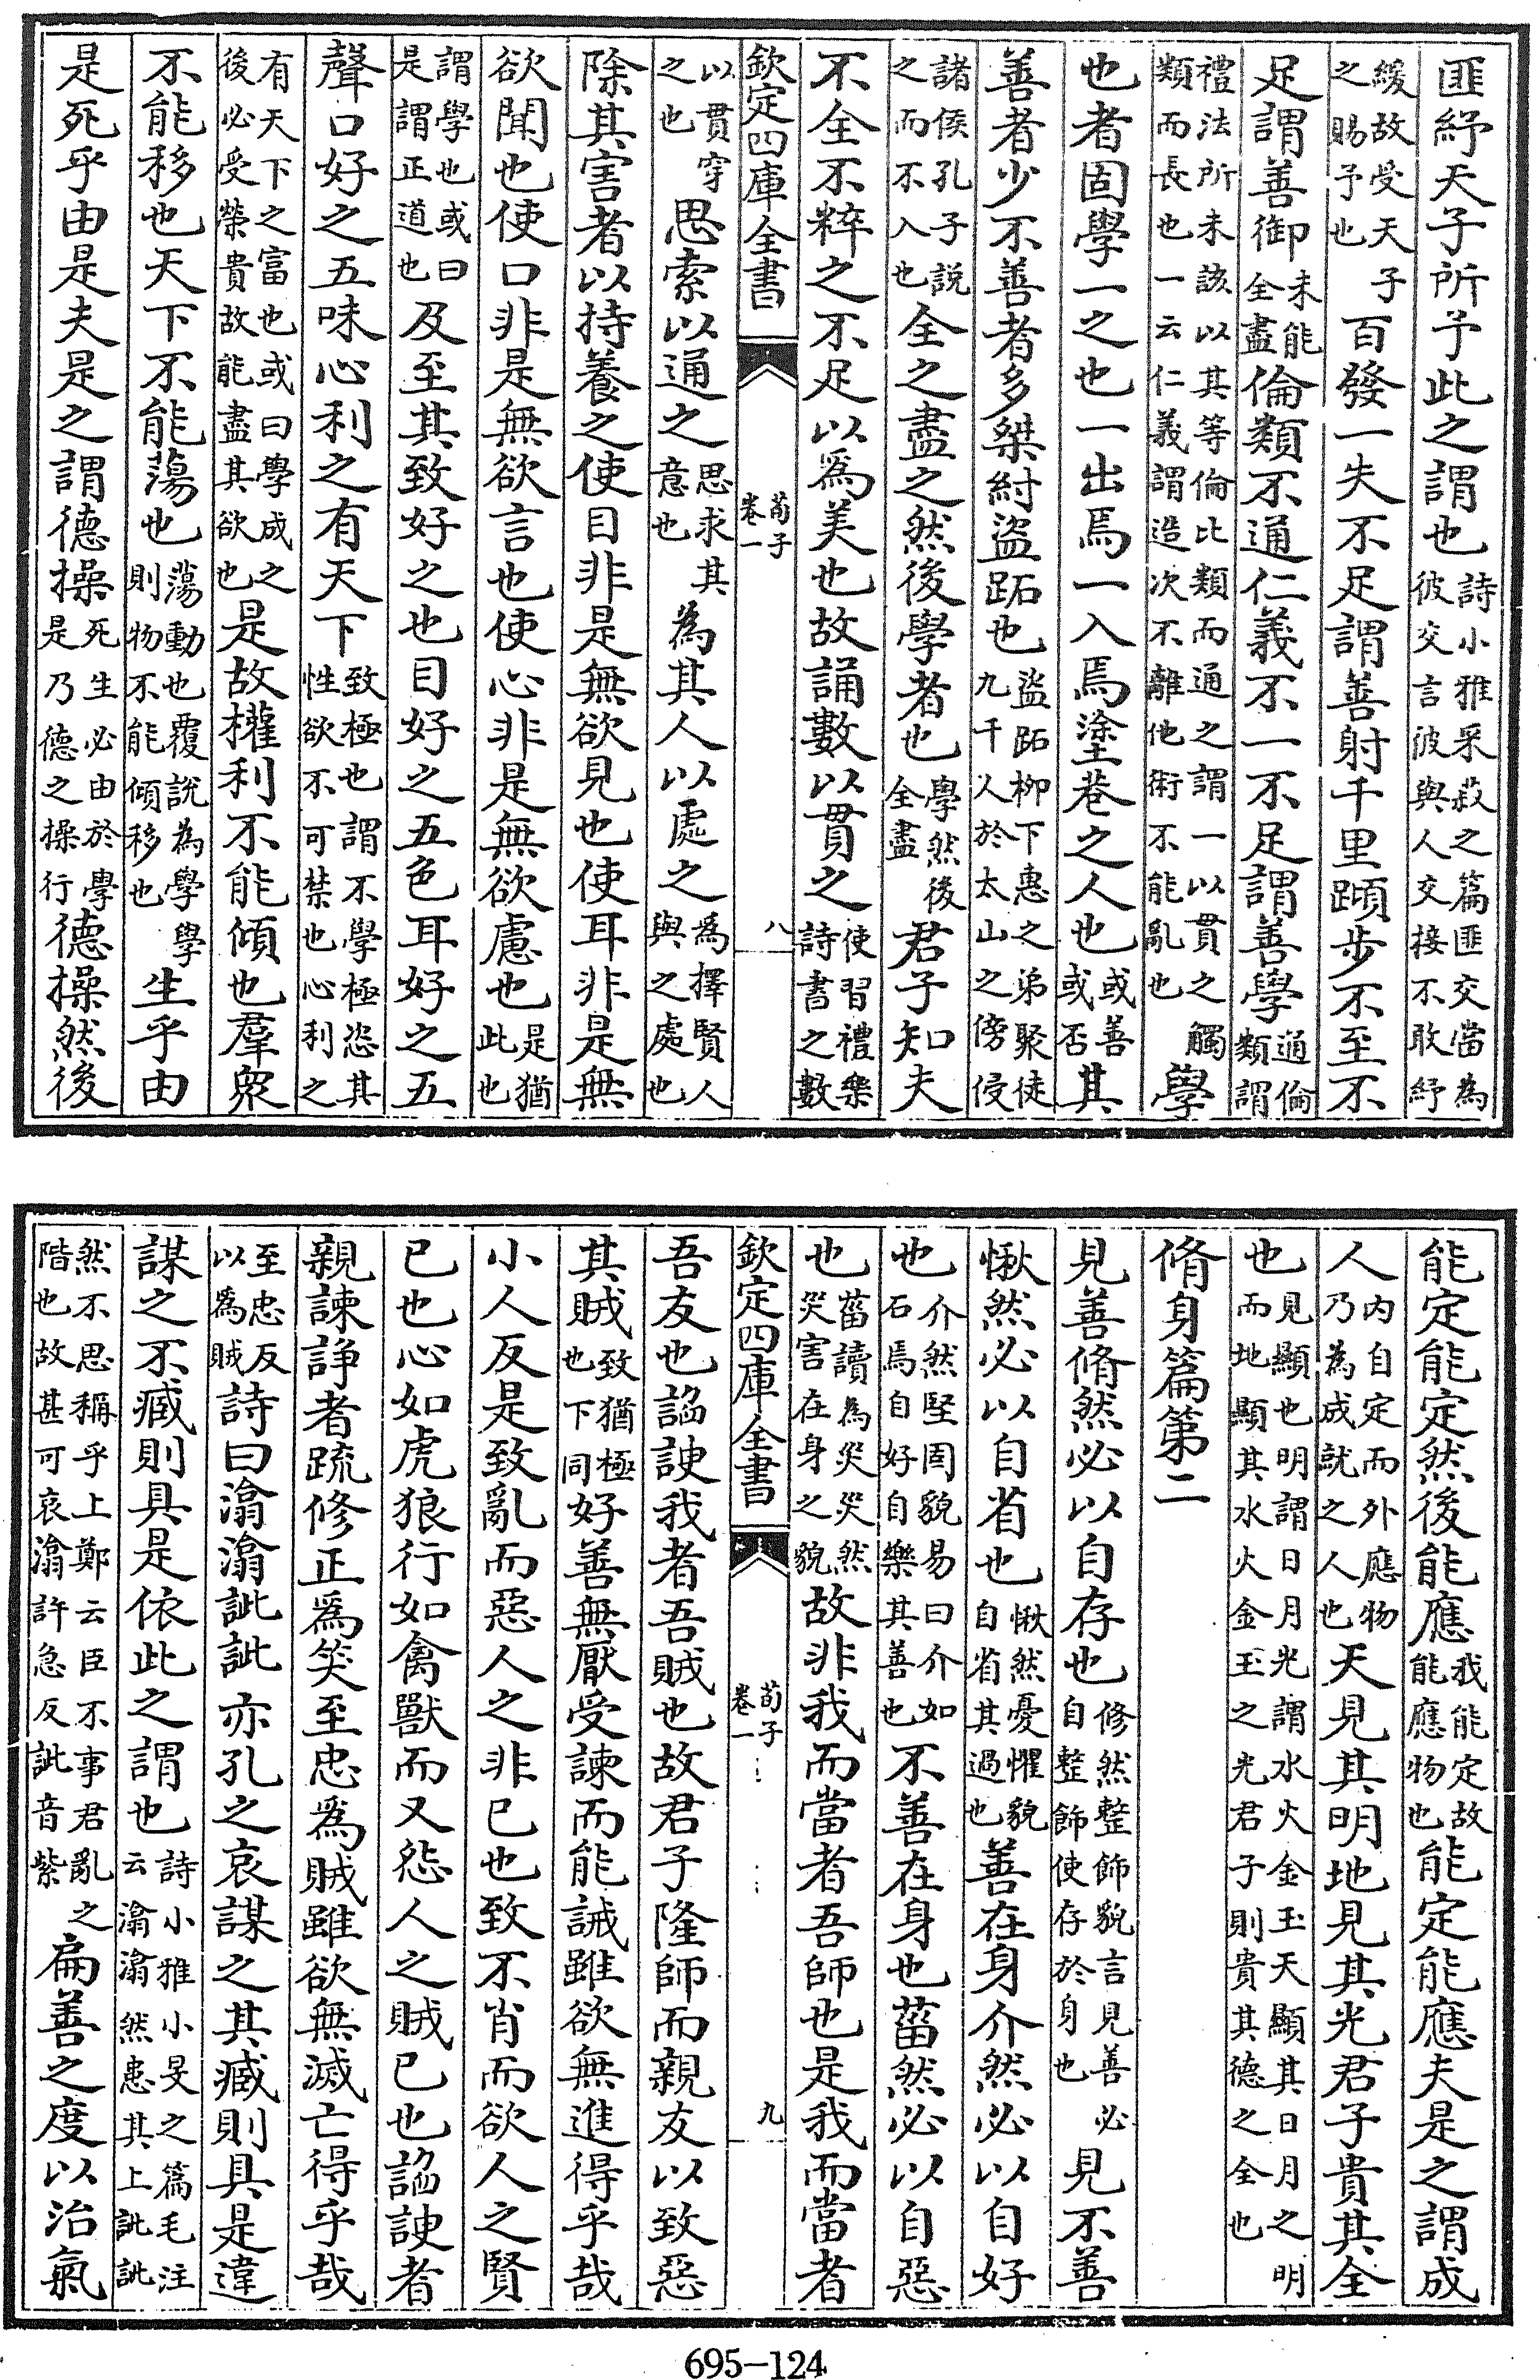 匪紓天子所予此之謂也詩小雅采菽之篇匪交當為彼交言彼與人交接不敢紓
緩故受天子之賜予也百發一失不足謂善射千里蹞步不至不
足謂善御未能全盡倫類不通仁義不一不足謂善學通倫類謂
禮法所未該以其等倫比類而通之謂一以貫之觸類而長也一云仁義謂造次不離他術不能亂也學
也者固學一之也一出焉一入焉塗巷之人也或善或否其
善者少不善者多桀紂盜跖也盜跖柳下惠之弟聚徒九千人於太山之傍侵
諸侯孔子說之而不入也全之盡之然後學者也學然後全盡君子知夫
不全不粹之不足以爲美也故誦數以貫之使習禮樂詩書之數
欽定四庫全書 荀子卷一 八
以貫穿之也思索以通之思求其意也為其人以處之為擇賢人與之處也
除其害者以持養之使目非是無欲見也使耳非是無
欲聞也使口非是無欲言也使心非是無欲慮也是猶此也
謂學也或曰是謂正道也及至其致好之也目好之五色耳好之五
聲口好之五味心利之有天下致極也謂不學極恣其性欲不可禁也心利之
有天下之富也或曰學成之後必受榮貴故能盡其欲也是故權利不能傾也羣衆
不能移也天下不能蕩也蕩動也覆說為學學則物不能傾移也生乎由
是死乎由是夫是之謂德操死生必由於學是乃德之操行德操然後
能定能定然後能應我能定故能應物也能定能應夫是之謂成
人內自定而外應物乃為成就之人也天見其明地見其光君子貴其全
也見顯也明謂日月光謂水火金玉天顯其日月之明而地顯其水火金玉之光君子則貴其德之全也
脩身篇第二
見善脩然必以自存也修然整飾貌言見善必自整飾使存於身也見不善
愀然必以自省也愀然憂懼貌自省其過也善在身介然必以自好
也介然堅固貌易曰介如石焉自好自樂其善也不善在身也菑然必以自惡
也菑讀為災災然災害在身之貌故非我而當者吾師也是我而當者
欽定四庫全書 荀子卷一 九
吾友也諂諛我者吾賊也故君子隆師而親友以致惡
其賊致猶極也下同好善無厭受諫而能誡雖欲無進得乎哉
小人反是致亂而惡人之非己也致不肖而欲人之賢
己也心如虎狼行如禽獸而又怨人之賊己也諂諛者
親諫諍者疏修正爲笑至忠爲賊雖欲無滅亡得乎哉
至忠反以爲賊詩曰潝潝訿訿亦孔之哀謀之其臧則具是違
謀之不臧則具是依此之謂也詩小雅小旻之篇毛注云潝潝然患其上訿訿
然不思稱乎上鄭云臣不事君亂之階也故甚可哀潝許急反訿音紫扁善之度以治氣
695-124